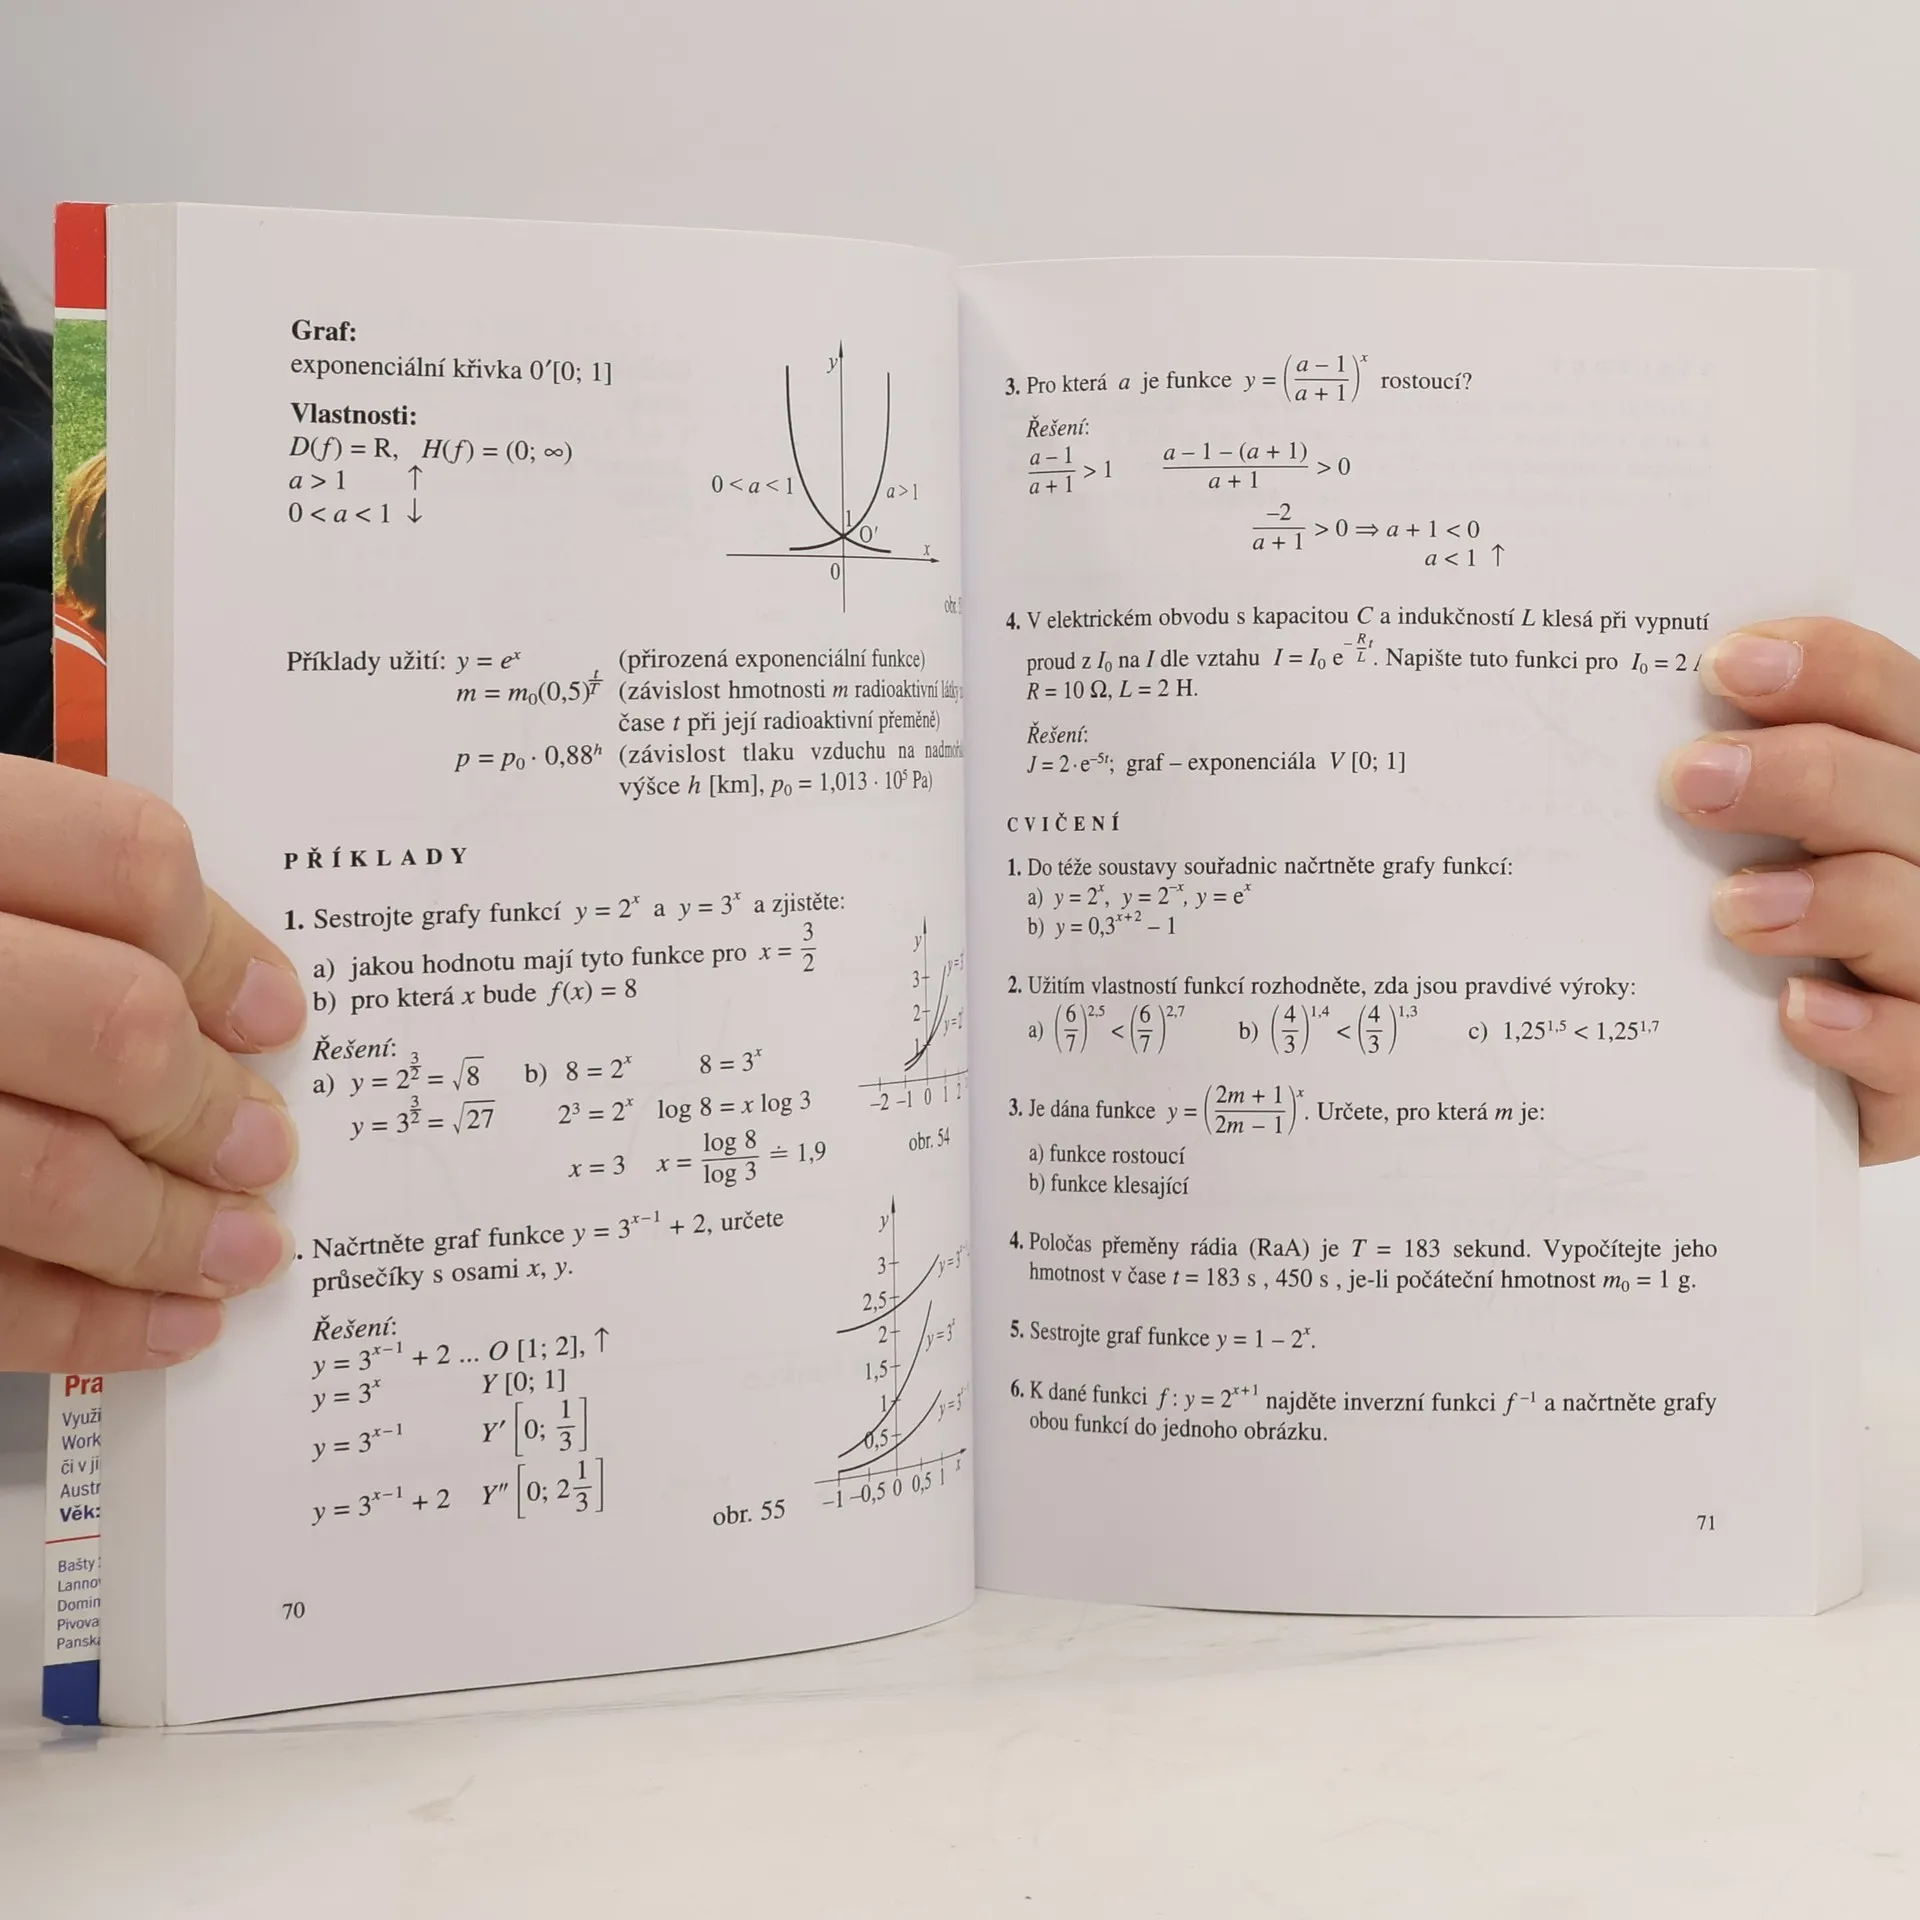 Graf:
exponenciální křivka 0′[0; 1]
Vlastnosti:
D(f) = R, H(f) = (0; ∞)
a > 1 ↑
0 < a < 1 ↓
y
0 < a < 1
a > 1
1
O′
x
0
Příklady užití: y = eˣ (přirozená exponenciální funkce)
m = m₀(0,5)^(t/T) (závislost hmotnosti m radioaktivní
čase t při její radioaktivní přeměně)
p = p₀ · 0,88ʰ (závislost tlaku vzduchu na
výšce h [km], p₀ = 1,013 · 10⁵ Pa)
PŘÍKLADY
1. Sestrojte grafy funkcí y = 2ˣ a y = 3ˣ a zjistěte:
a) jakou hodnotu mají tyto funkce pro x = 3/2
b) pro která x bude f(x) = 8
Řešení:
a) y = 2^(3/2) = √8 b) 8 = 2ˣ 8 = 3ˣ
y = 3^(3/2) = √27 2³ = 2ˣ log 8 = x log 3
x = 3 x = log 8/log 3 ≐ 1,9
y
3
2
1
-2 -1 0 1 2
obr. 54
. Načrtněte graf funkce y = 3ˣ⁻¹ + 2, určete
průsečíky s osami x, y.
Řešení:
y = 3ˣ⁻¹ + 2 ... O [1; 2], ↑
y = 3ˣ Y [0; 1]
y = 3ˣ⁻¹ Y′ [0; 1/3]
y = 3ˣ⁻¹ + 2 Y″ [0; 2 1/3]
y
3
2,5
2
y = 3ˣ
1,5
1
0,5
-1 -0,5 0 0,5 1 x
obr. 55
70
3. Pro která a je funkce y = ((a – 1)/(a + 1))ˣ rostoucí?
Řešení:
(a – 1)/(a + 1) > 1 (a – 1 – (a + 1))/(a + 1) > 0
–2/(a + 1) > 0 ⇒ a + 1 < 0
a < 1 ↑
4. V elektrickém obvodu s kapacitou C a indukčností L klesá při vypnutí
proud z I₀ na I dle vztahu I = I₀ e^(–(R/L)t). Napište tuto funkci pro I₀ = 2
R = 10 Ω, L = 2 H.
Řešení:
J = 2·e⁻⁵ᵗ; graf – exponenciála V [0; 1]
CVIČENÍ
1. Do téže soustavy souřadnic načrtněte grafy funkcí:
a) y = 2ˣ, y = 2⁻ˣ, y = eˣ
b) y = 0,3ˣ⁺² – 1
2. Užitím vlastností funkcí rozhodněte, zda jsou pravdivé výroky:
a) (6/7)^2,5 < (6/7)^2,7 b) (4/3)^1,4 < (4/3)^1,3 c) 1,25^1,5 < 1,25^1,7
3. Je dána funkce y = ((2m + 1)/(2m – 1))ˣ. Určete, pro která m je:
a) funkce rostoucí
b) funkce klesající
4. Poločas přeměny rádia (RaA) je T = 183 sekund. Vypočítejte jeho
hmotnost v čase t = 183 s , 450 s , je-li počáteční hmotnost m₀ = 1 g.
5. Sestrojte graf funkce y = 1 – 2ˣ.
6. K dané funkci f : y = 2ˣ⁺¹ najděte inverzní funkci f⁻¹ a načrtněte grafy
obou funkcí do jednoho obrázku.
71
Pra
Využi
Work
či v ji
Austr
Věk:
Bašty
Lanno
Domin
Pivova
Panska